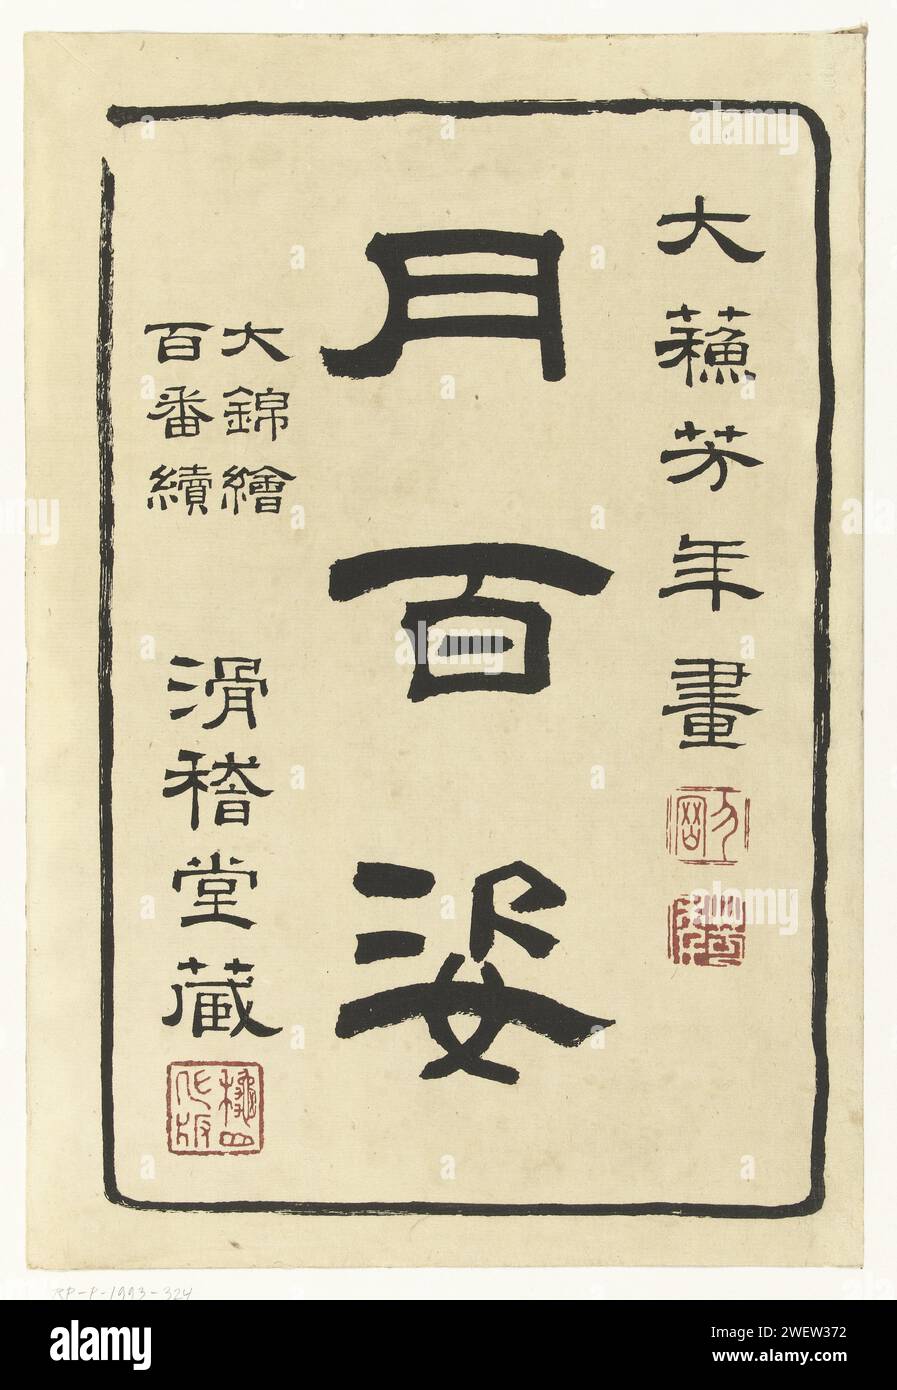 大蘓芳年畫
月百姿
大錦繪
百番續
滑稽堂藏
RP-P-1993-324
alamy
Image ID: 2WEW372
www.alamy.com